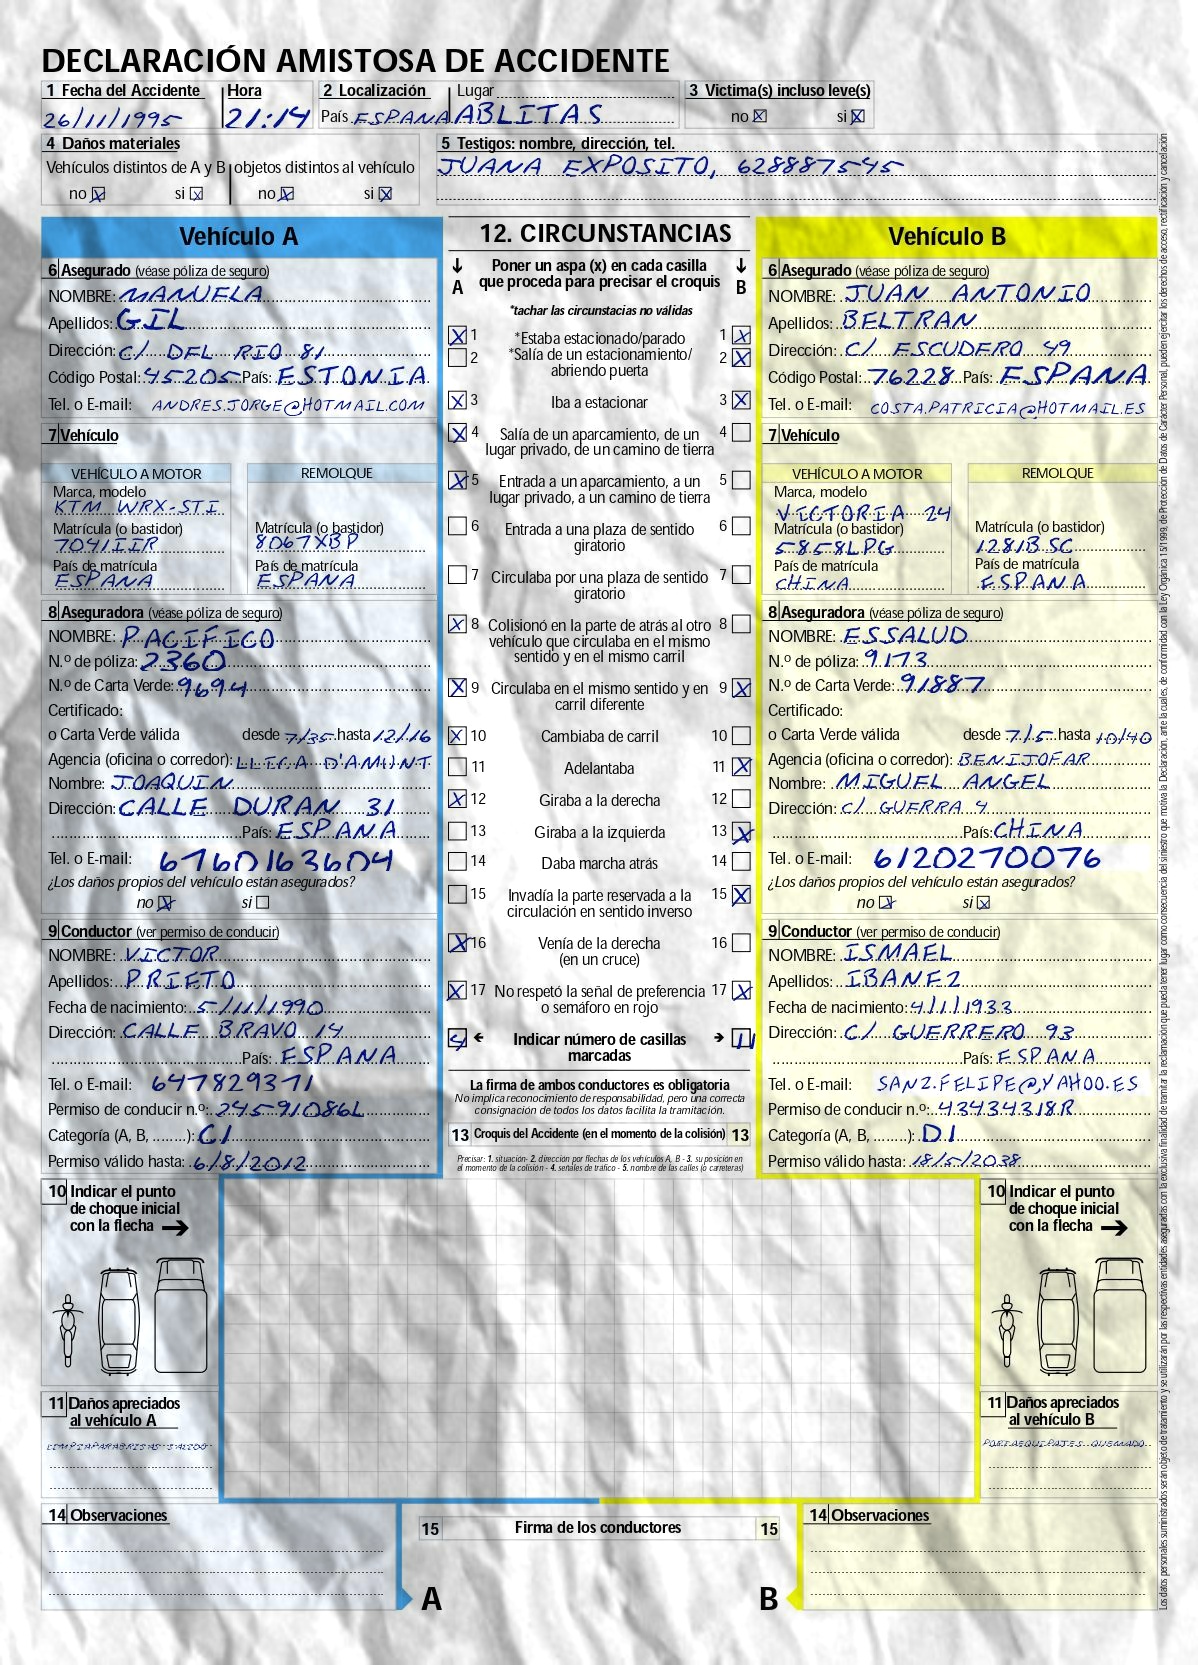 DECLARACIÓN AMISTOSA DE ACCIDENTE
1 Fecha del Accidente Hora 2 Localización Lugar 3 Victima(s) incluso leve(s)
26/11/1995 21:14 País ESPANA ABLITAS no X si X
4 Daños materiales
Vehículos distintos de A y B objetos distintos al vehículo
no X si X no X si X
5 Testigos: nombre, dirección, tel.
JUANA EXPOSITO, 628887545
Vehículo A
6 Asegurado (véase póliza de seguro)
NOMBRE: MANUELA
Apellidos: GIL
Dirección: C/ DEL RIO 81
Código Postal: 45205 País: ESTONIA
Tel. o E-mail: ANDRES.JORGE@HOTMAIL.COM
7 Vehículo
VEHÍCULO A MOTOR REMOLQUE
Marca, modelo
KTM WRX-STI
Matrícula (o bastidor) Matrícula (o bastidor)
7041IIR 8067XBP
País de matrícula País de matrícula
ESPANA ESPANA
8 Aseguradora (véase póliza de seguro)
NOMBRE: PACIFICO
N.º de póliza: 2360
N.º de Carta Verde: 9694
Certificado:
o Carta Verde válida desde 7/35 hasta 12/16
Agencia (oficina o corredor): LLICA D'AMUNT
Nombre: JOAQUIN
Dirección: CALLE DURAN 31
País: ESPANA
Tel. o E-mail: 6760163604
¿Los daños propios del vehículo están asegurados?
no X si
9 Conductor (ver permiso de conducir)
NOMBRE: VICTOR
Apellidos: PRIETO
Fecha de nacimiento: 5/11/1990
Dirección: CALLE BRAVO 14
País: ESPANA
Tel. o E-mail: 647829371
Permiso de conducir n.º: 24591086L
Categoría (A, B, ........): C1
Permiso válido hasta: 6/8/2012
12. CIRCUNSTANCIAS
A Poner un aspa (x) en cada casilla B
que proceda para precisar el croquis
*tachar las circunstacias no válidas
X 1 *Estaba estacionado/parado 1 X
2 *Salía de un estacionamiento/ 2 X
abriendo puerta
X 3 Iba a estacionar 3 X
X 4 Salía de un aparcamiento, de un 4
lugar privado, de un camino de tierra
X 5 Entrada a un aparcamiento, a un 5
lugar privado, a un camino de tierra
6 Entrada a una plaza de sentido 6
giratorio
7 Circulaba por una plaza de sentido 7
giratorio
X 8 Colisionó en la parte de atrás al otro 8
vehículo que circulaba en el mismo
sentido y en el mismo carril
X 9 Circulaba en el mismo sentido y en 9 X
carril diferente
X 10 Cambiaba de carril 10
11 Adelantaba 11 X
X 12 Giraba a la derecha 12
13 Giraba a la izquierda 13 X
14 Daba marcha atrás 14
15 Invadía la parte reservada a la 15 X
circulación en sentido inverso
X 16 Venía de la derecha 16
(en un cruce)
X 17 No respetó la señal de preferencia 17 X
o semáforo en rojo
Indicar número de casillas 11
marcadas
La firma de ambos conductores es obligatoria
No implica reconocimiento de responsabilidad, pero una correcta
consignación de todos los datos facilita la tramitación.
13 Croquis del Accidente (en el momento de la colisión) 13
Precisar: 1. situación- 2. dirección por flechas de los vehículos A, B - 3. su posición en
el momento de la colisión - 4. señales de tráfico - 5. nombre de las calles (o carreteras)
Vehículo B
6 Asegurado (véase póliza de seguro)
NOMBRE: JUAN ANTONIO
Apellidos: BELTRAN
Dirección: C/ ESCUDERO 49
Código Postal: 76228 País: ESPANA
Tel. o E-mail: COSTA.PATRICIA@HOTMAIL.ES
7 Vehículo
VEHÍCULO A MOTOR REMOLQUE
Marca, modelo
VICTORIA 24
Matrícula (o bastidor) Matrícula (o bastidor)
5858LPG 1281BSC
País de matrícula País de matrícula
CHINA ESPANA
8 Aseguradora (véase póliza de seguro)
NOMBRE: ESSALUD
N.º de póliza: 9173
N.º de Carta Verde: 91887
Certificado:
o Carta Verde válida desde 7/5 hasta 10/40
Agencia (oficina o corredor): BENIJOFAR
Nombre: MIGUEL ANGEL
Dirección: C/ GUERRA 4
País: CHINA
Tel. o E-mail: 6120270076
¿Los daños propios del vehículo están asegurados?
no X si X
9 Conductor (ver permiso de conducir)
NOMBRE: ISMAEL
Apellidos: IBANEZ
Fecha de nacimiento: 4/1/1933
Dirección: C/ GUERRERO 93
País: ESPANA
Tel. o E-mail: SANZ.FELIPE@YAHOO.ES
Permiso de conducir n.º: 43434318R
Categoría (A, B, ........): D1
Permiso válido hasta: 18/5/2038
10 Indicar el punto
de choque inicial
con la flecha
11 Daños apreciados
al vehículo A
LIMPIAPARABRISAS SALIDO
10 Indicar el punto
de choque inicial
con la flecha
11 Daños apreciados
al vehículo B
PORTAEQUIPAJES QUEMADO
14 Observaciones
15 Firma de los conductores 15
A B
14 Observaciones
Los datos personales suministrados serán objeto de tratamiento y se utilizarán por las respectivas entidades aseguradas con la exclusiva finalidad de tramitar la reclamación que pueda tener lugar como consecuencia del siniestro que motiva la Declaración, ante la cuales, de conformidad con la Ley Orgánica 15/1999, de Protección de Datos de Carácter Personal, pueden ejercitar los derechos de acceso, rectificación y cancelación